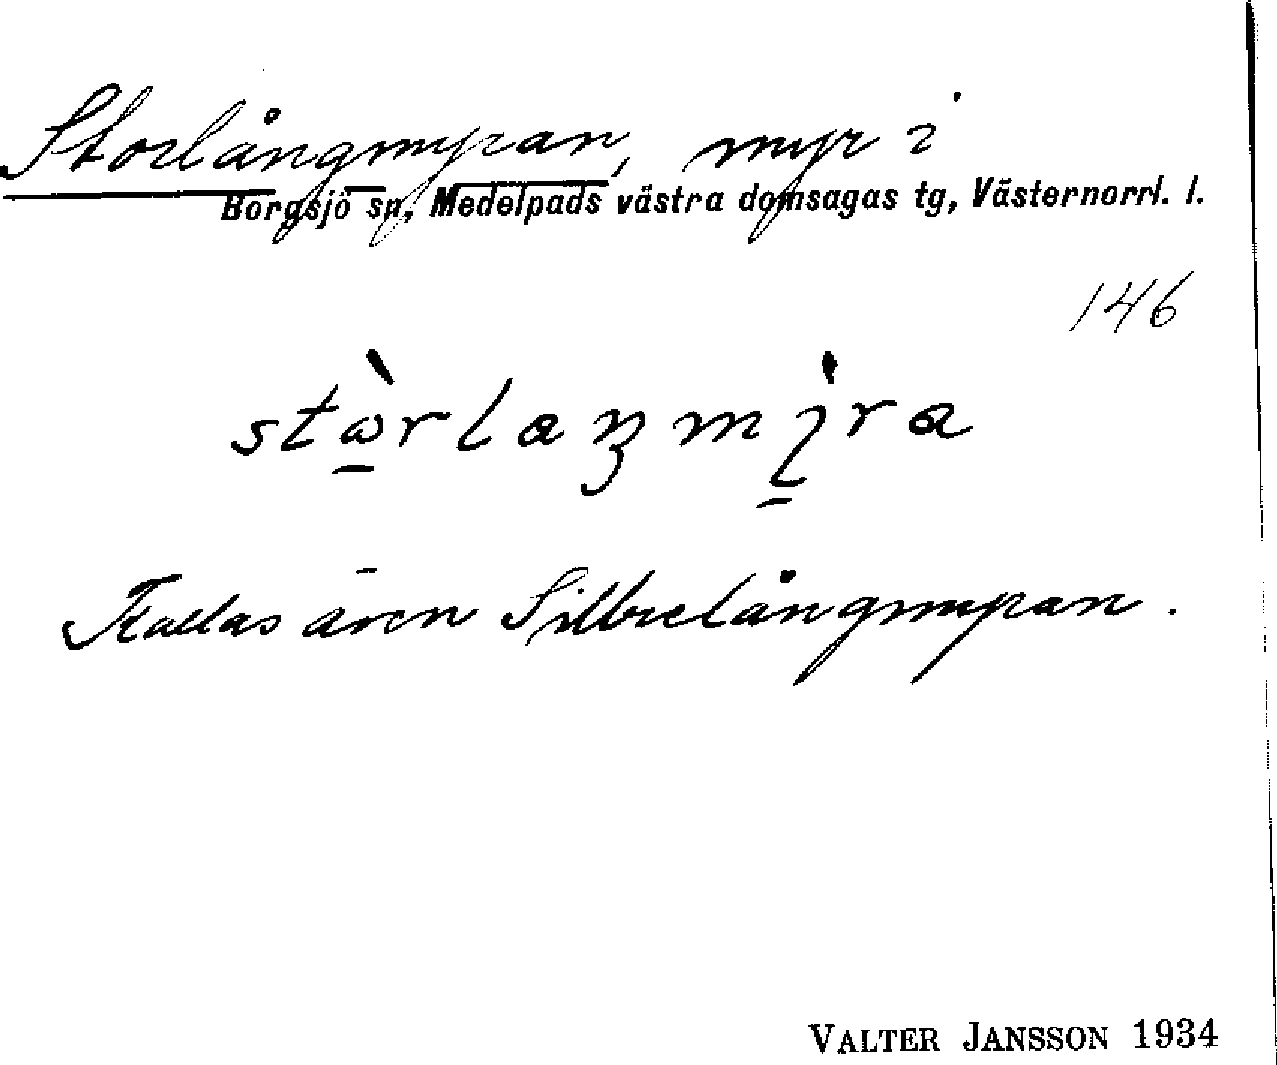 Storlångmyran, myr i
Borgsjö sn, Medelpads västra domsagas tg, Västernorrl. l.
146
Kallas även Sillrelångmyran.
VALTER JANSSON 1934